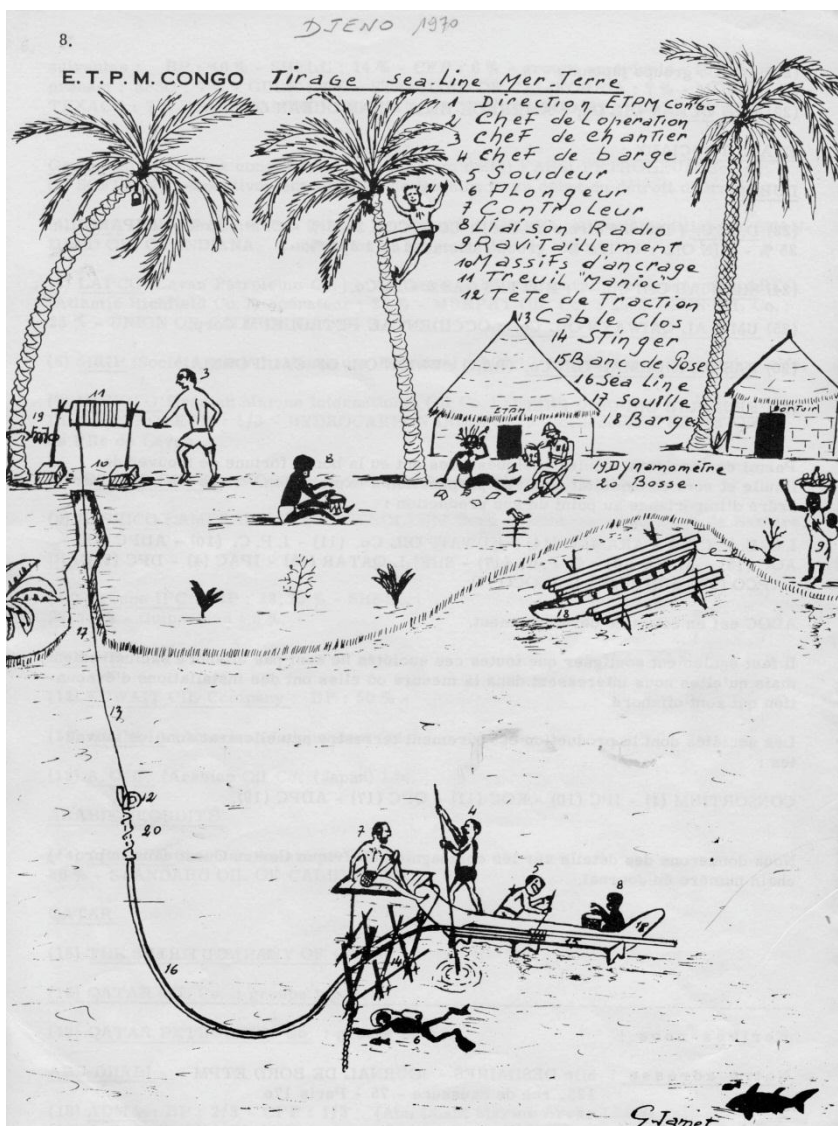 DJENO 1970
8.
E.T.P.M. CONGO Tirage sea-line Mer-Terre
1 Direction ETPM Congo
2 Chef de l'opération
3 Chef de chantier
4 Chef de barge
5 Soudeur
6 Plongeur
7 Contrôleur
8 Liaison Radio
9 Ravitaillement
10 Massifs d'ancrage
11 Treuil "Manioc"
12 Tête de Traction
13 Cable Clos
14 Stinger
15 Banc de Pose
16 Sea Line
17 Souille
18 Barge
19 Dynamomètre
20 Bosse
2
11
3
19
10
8
ETPM
1
9
18
17
13
12
20
7
4
5
8
18
15
14
16
6
G. Jamet